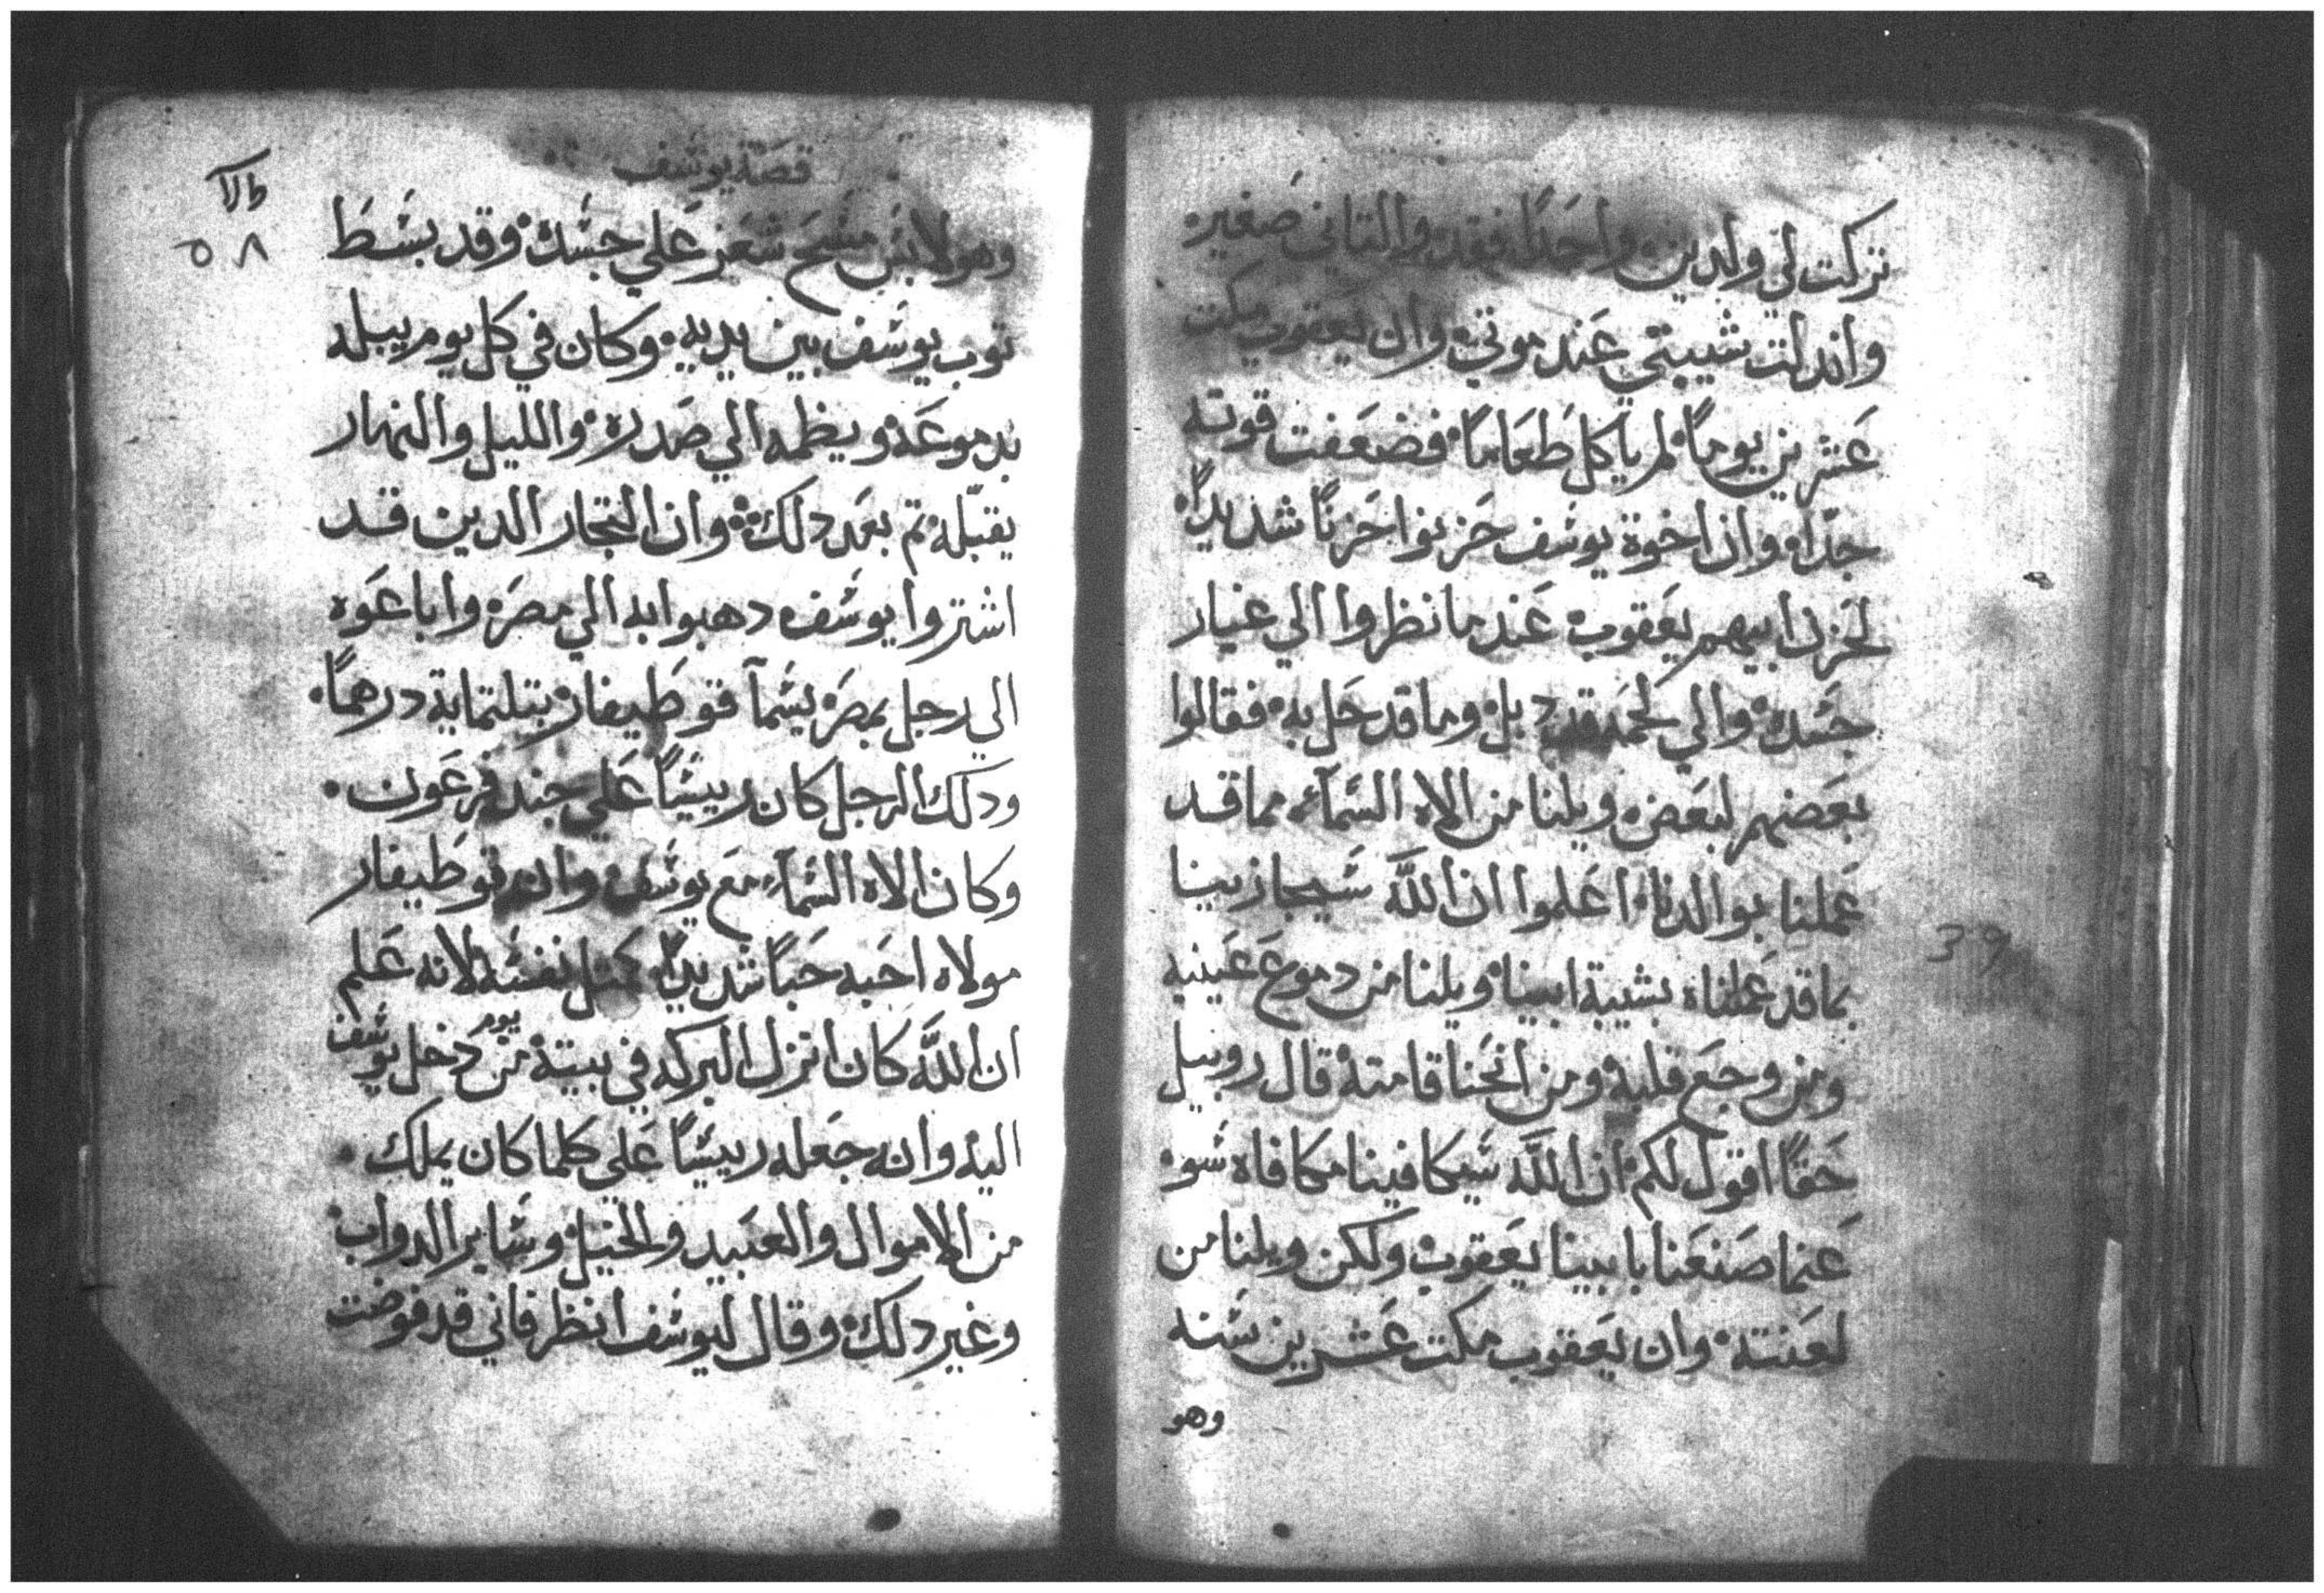 تركت لي ولدين واحدًا فقد والتاني صغير
واندلت شيبتي عند موتي وان يعقوب مكت
عشرين يومًا لم ياكل طعامًا فضعفت قوته
جدًا وان اخوة يوسف حزنوا حزنًا شديدًا
لحزن ابيهم يعقوب عند ما نظروا الي غيار
جسده والي لحمه قد دبل وما قد حل به فقالوا
بعضهم لبعض ويلنا من الاه السمآء مما قد
عملنا بوالدنا اعلموا ان اللّه سيجازينا
بما قد عملنا بشيبة ابينا ويلنا من دموع عينيه
ومن وجع قلبه ومن انحنا قامته قال روبيل
حقًا اقول لكم ان اللّه سيكافينا مكافاه سو
عنما صنعنا بابينا يعقوب ولكن ويلنا من
لعنته وان يعقوب مكت عشرين سنه
وهو
39
قصة يوسف
٥٨
وهو لابس مسح شعر علي جسده وقد بسط
توب يوسف بين يديه وكان في كل يوم يبله
بدموعه ويظمه الي صدره والليل والنهار
يقبّله تم بعد دلك وان التجار الدين قد
اشتروا يوسف دهبوا به الي مصر واباعوه
الي رجل بمصر يسمآ قوطيفار بتلتماية درهمًا
ودلك الرجل كان رييسًا علي جند فرعون
وكان الاه السمآء مع يوسف وان قوطيفار
مولاه احبه حبًا شديدًا كمتل نفسه لانه علم
ان اللّه كان انزل البركه في بيته من يوم دخل يوسف
اليه وانه جعله رييسًا علي كلما كان يملك
من الاموال والعبيد والخيل وساير الدواب
وغير دلك وقال ليوسف انظر فاني قد فوضت